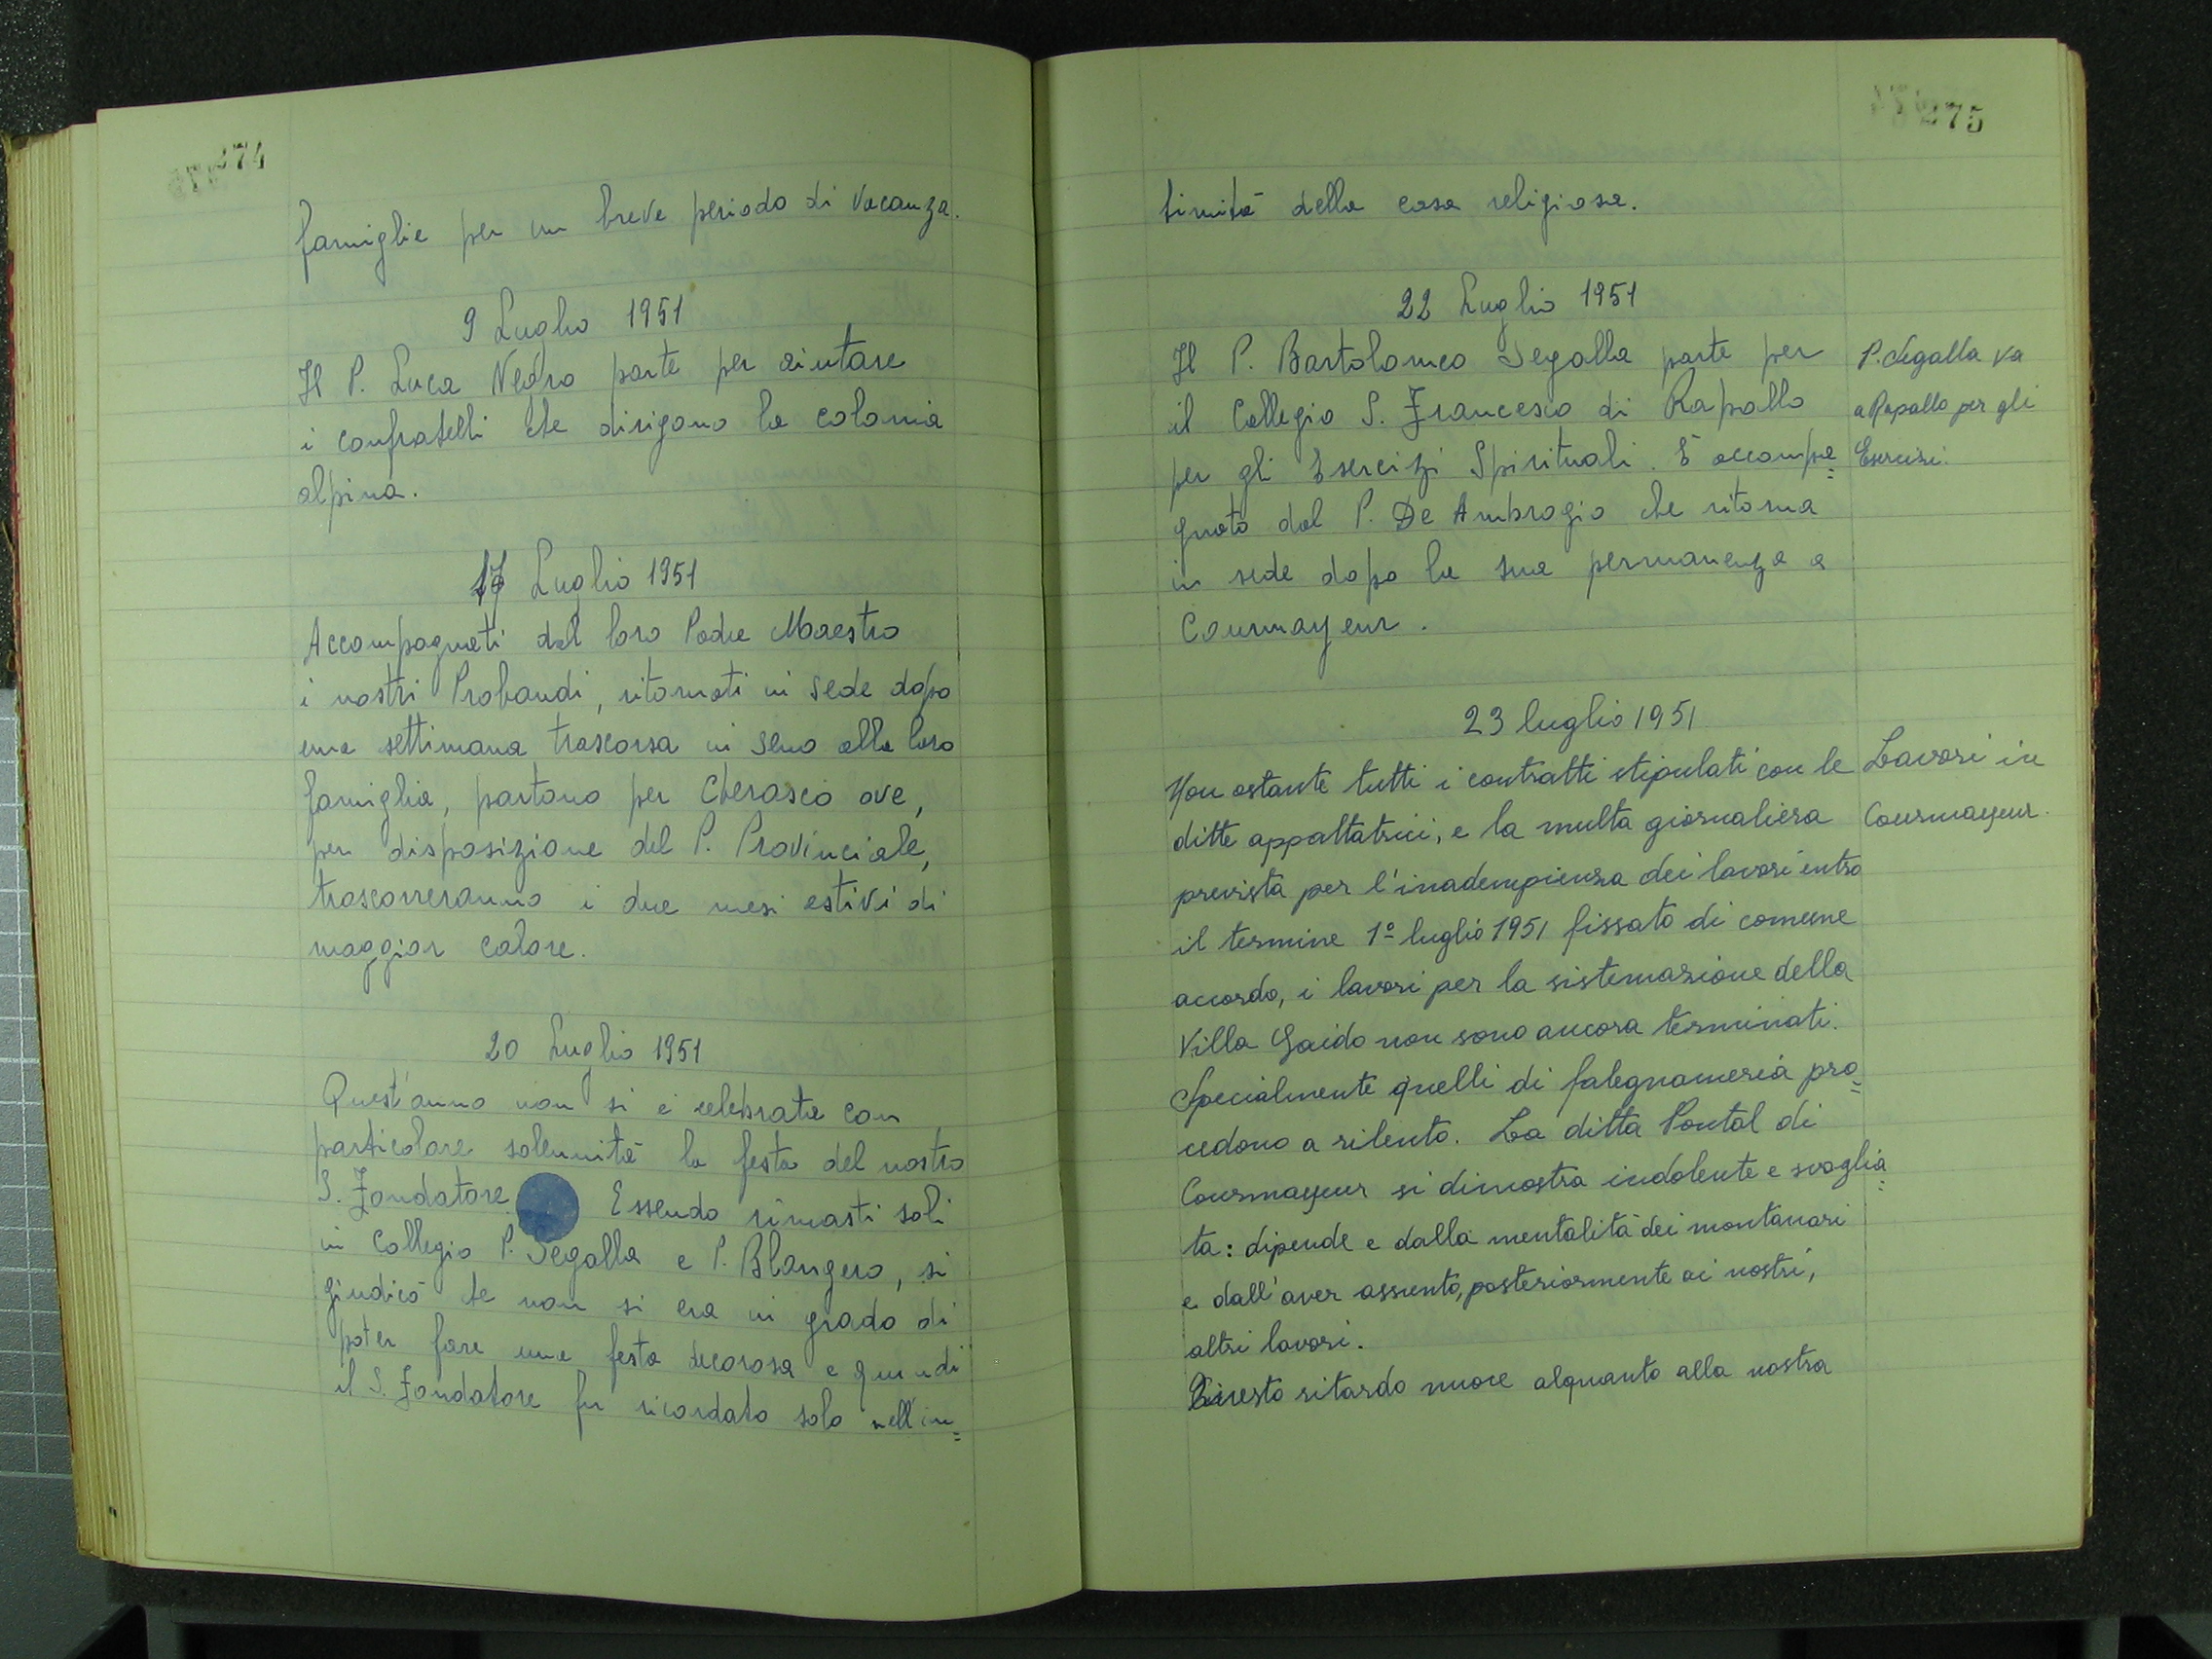 274
famiglie per un breve periodo di vacanza.
9 Luglio 1951
Il P. Luca Negro parte per aiutare
i confratelli che dirigono la colonia
alpina.
17 Luglio 1951
Accompagnati dal loro Padre Maestro
i nostri Probandi, ritornati in sede dopo
una settimana trascorsa in seno alla loro
famiglia, partono per Cherasco ove,
per disposizione del P. Provinciale,
trascorreranno i due mesi estivi di
maggior calore.
20 Luglio 1951
Quest'anno non si è celebrata con
particolare solennità la festa del nostro
S. Fondatore. Essendo rimasti soli
in Collegio P. Segalla e P. Blangero, si
giudicò che non si era in grado di
poter fare una festa decorosa e quindi
il S. Fondatore fu ricordato solo nell'in=
275
timità della casa religiosa.
22 Luglio 1951
Il P. Bartolomeo Segalla parte per
il Collegio S. Francesco di Rapallo
per gli Esercizi Spirituali. È accompa=
gnato dal P. De Ambrogio che ritorna
in sede dopo la sua permanenza a
Courmayeur.
P. Segalla va
a Rapallo per gli
Esercizi.
23 luglio 1951
Non ostante tutti i contratti stipulati con le
ditte appaltatrici, e la multa giornaliera
prevista per l'inadempienza dei lavori entro
il termine 1º luglio 1951 fissato di comune
accordo, i lavori per la sistemazione della
Villa Gaido non sono ancora terminati.
Specialmente quelli di falegnameria pro=
cedono a rilento. La ditta Pontal di
Courmayeur si dimostra indolente e svoglia=
ta: dipende e dalla mentalità dei montanari
e dall'aver assunto, posteriormente ai nostri,
altri lavori.
Questo ritardo nuoce alquanto alla nostra
Lavori in
Courmayeur.